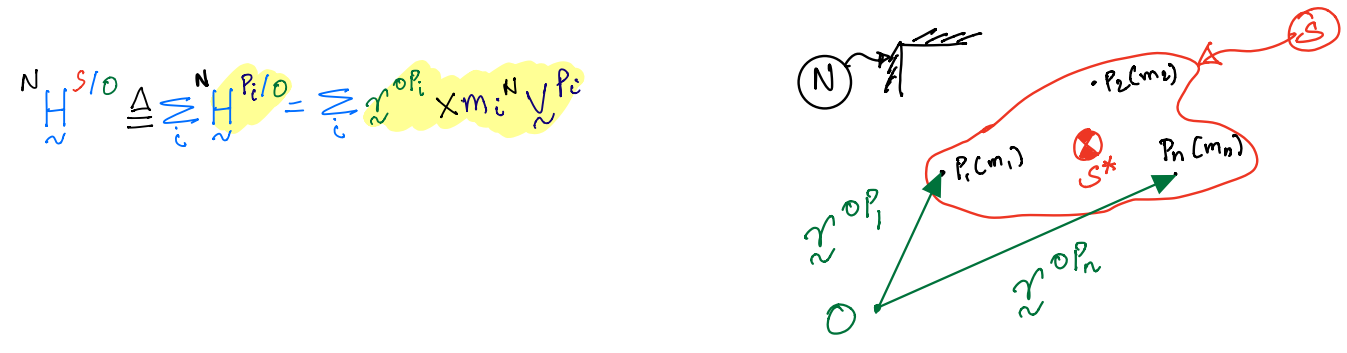 ᴺH̰ˢᐟᴼ ≜ Σᵢ ᴺH̰^{Pᵢ/O} = Σᵢ r̰^{OPᵢ} × mᵢ ᴺV̰^{Pᵢ}
N
S
P₂(m₂)
P₁(m₁)
Pₙ(mₙ)
S*
r̰^{OP₁}
r̰^{OPₙ}
O